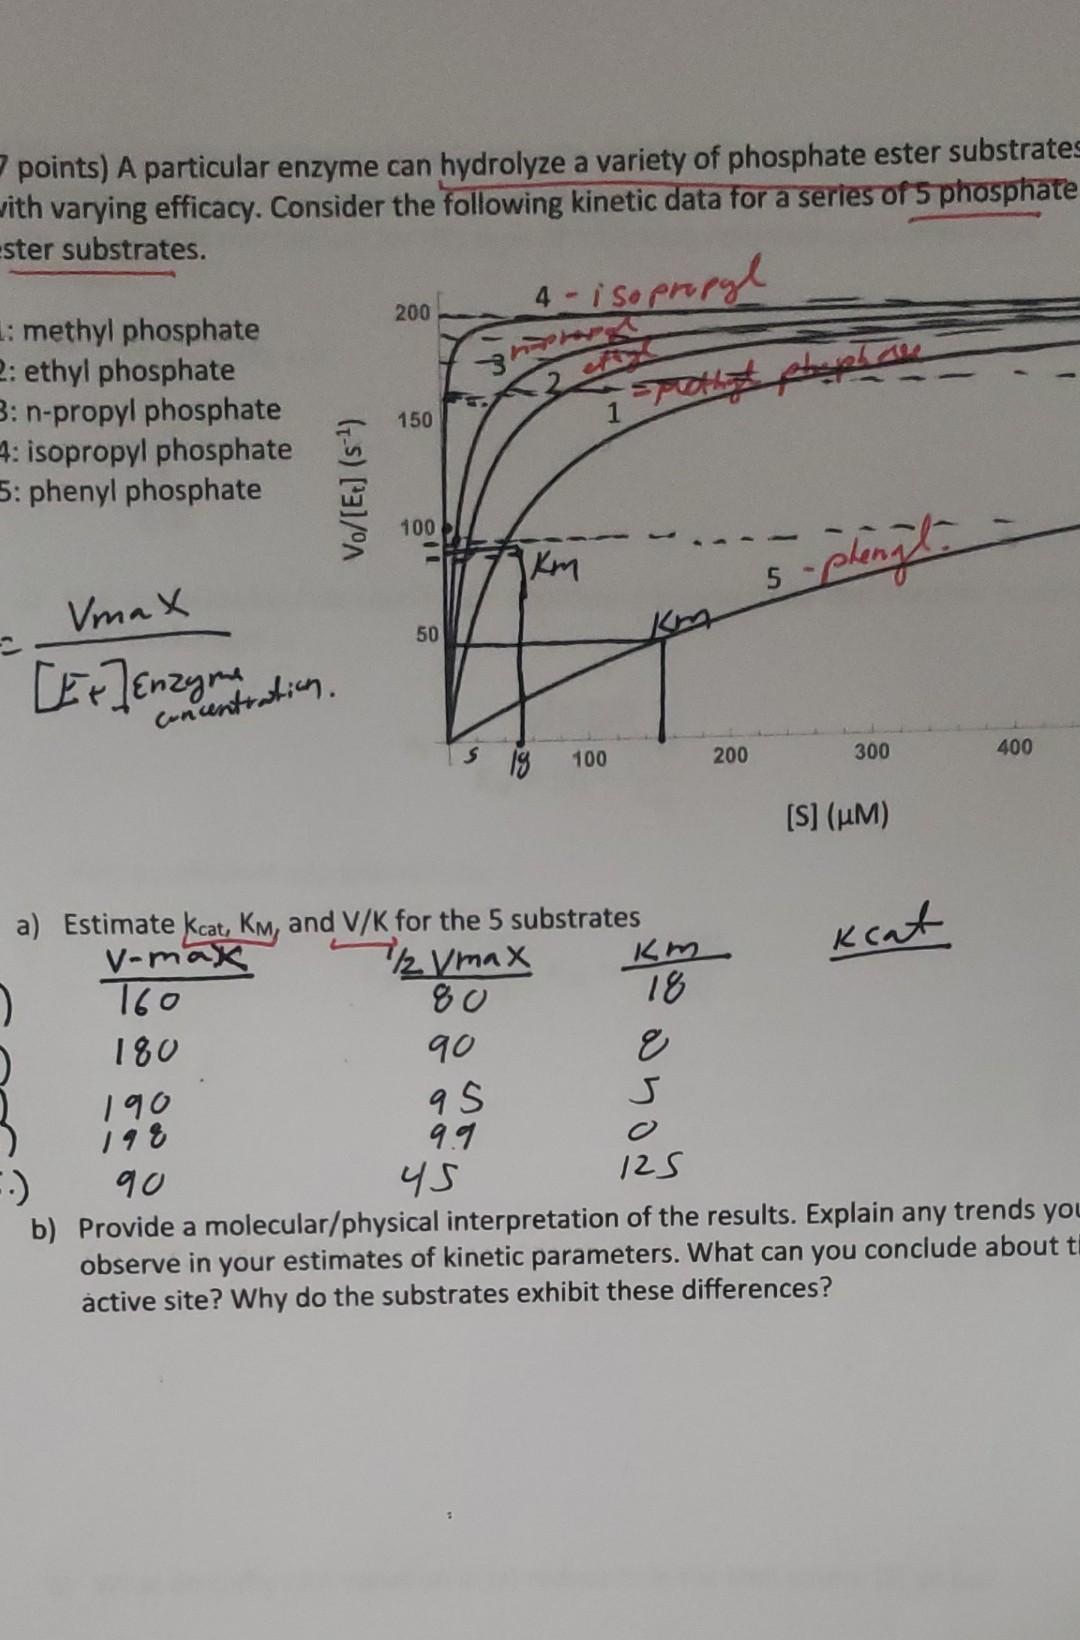 7 points) A particular enzyme can hydrolyze a variety of phosphate ester substrates
with varying efficacy. Consider the following kinetic data for a series of 5 phosphate
ester substrates.
1: methyl phosphate
2: ethyl phosphate
3: n-propyl phosphate
4: isopropyl phosphate
5: phenyl phosphate
= Vmax
[Et] Enzyme
concentration.
V₀/[Eₜ] (s⁻¹)
200
150
100
50
4 - isopropyl
3 n-propyl
2 ethyl
1 = methyl phosphate
Km
5 - phenyl.
Km
5 18 100 200 300 400
[S] (µM)
a) Estimate kcat, KM, and V/K for the 5 substrates
V-max 1/2 Vmax Km Kcat
160 80 18
180 90 8
190 95 5
198 99 0
5.) 90 45 125
b) Provide a molecular/physical interpretation of the results. Explain any trends you
observe in your estimates of kinetic parameters. What can you conclude about th
active site? Why do the substrates exhibit these differences?